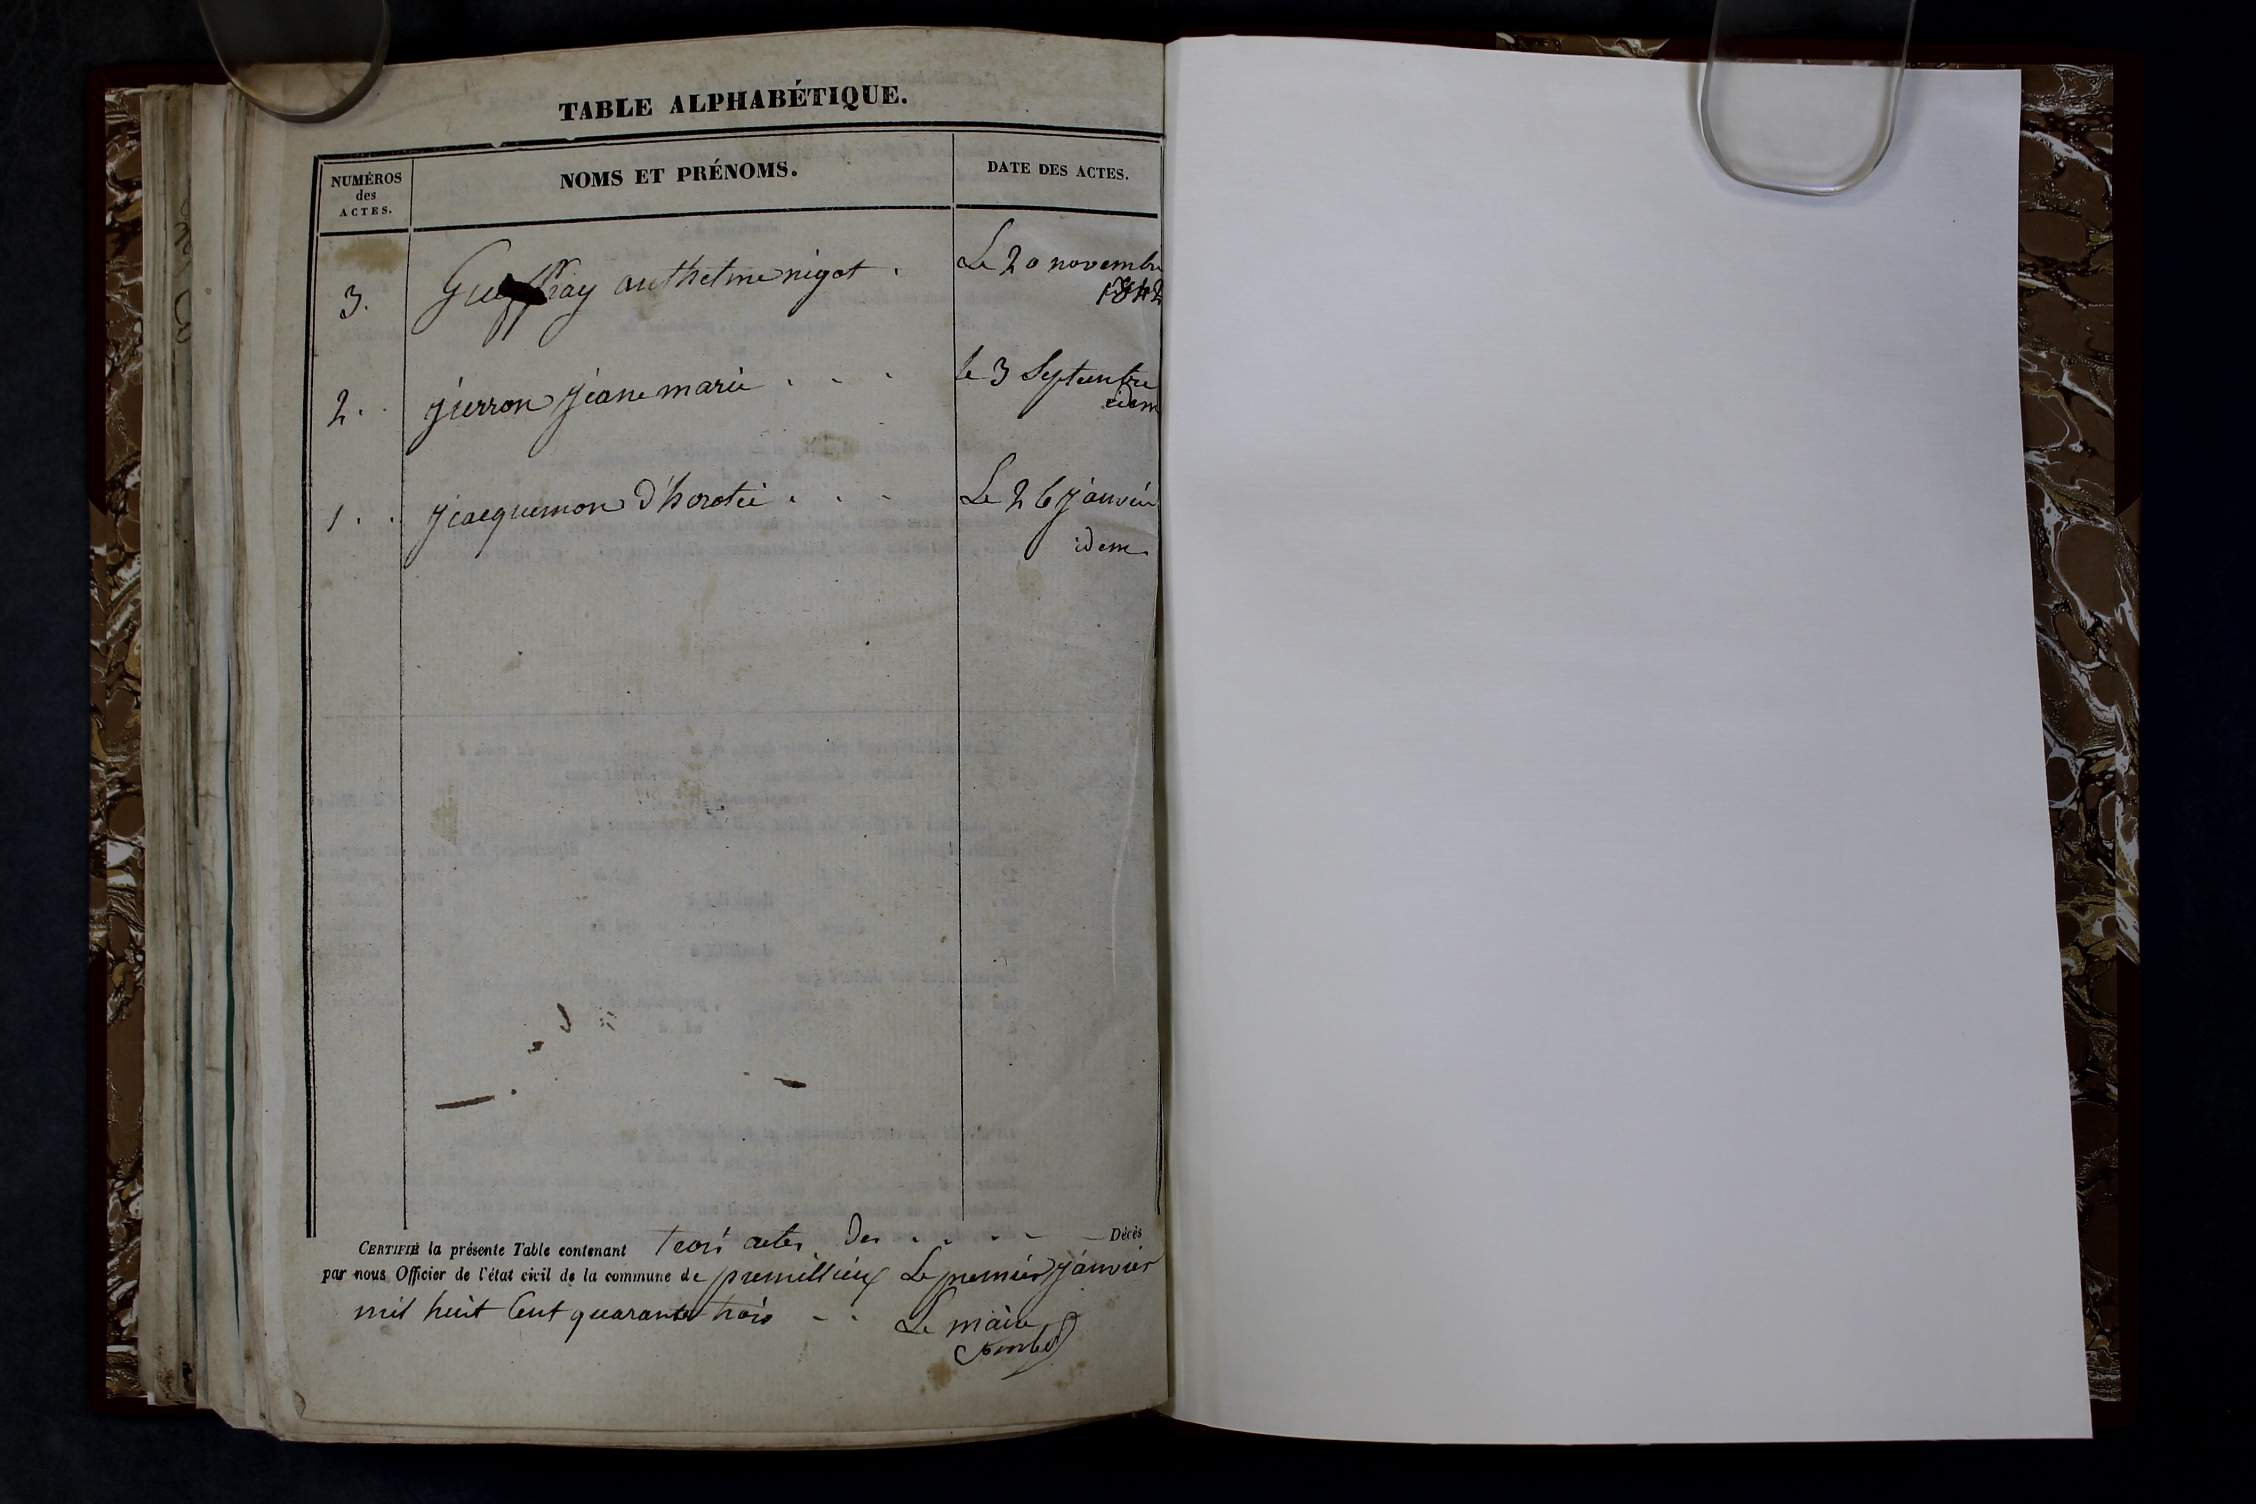 TABLE ALPHABÉTIQUE.
NUMÉROS des ACTES.
NOMS ET PRÉNOMS.
DATE DES ACTES.
3. Gueffray anthelme nigot. Le 20 novembre
1842
2. . jierron jeane marie . . . le 3 Septembre
idem
1 . . jiacquemon d'horotié . . . Le 26 janvier
idem
CERTIFIÉ la présente Table contenant trois actes Des . . . . Décès
par nous Officier de l'état civil de la commune de premillieux Le premier janvier
mil huit Cent quarante trois . . Le maire